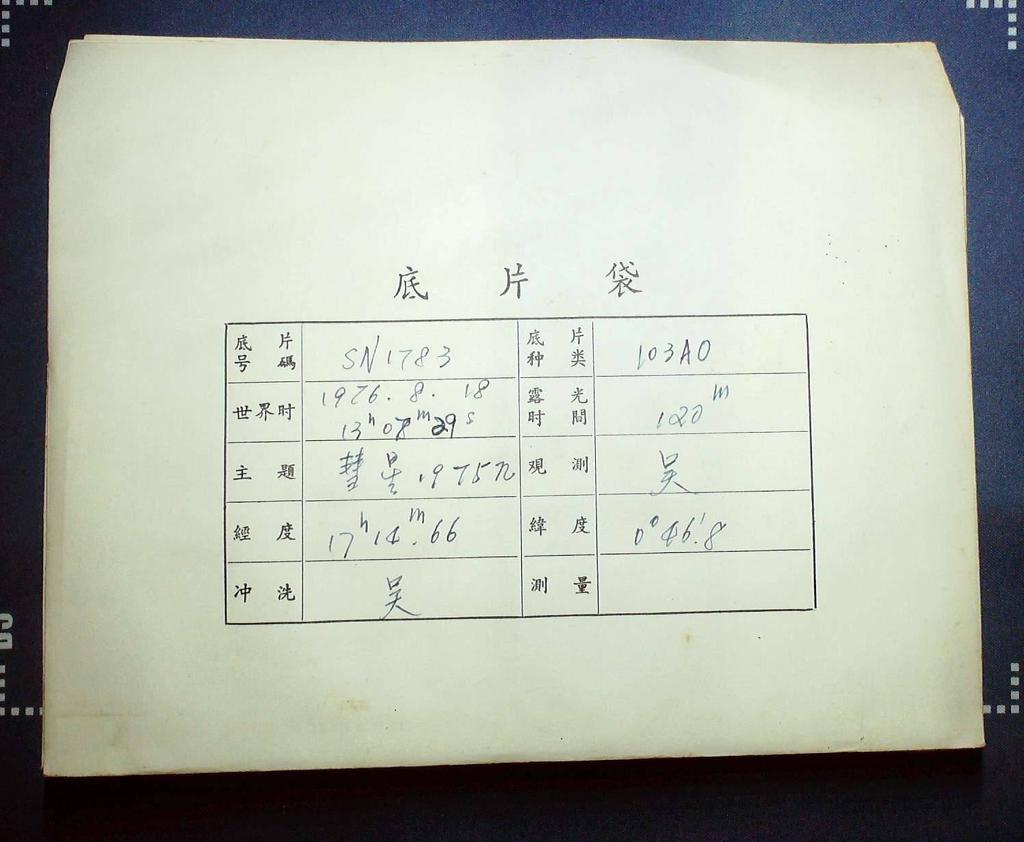 底片袋
底片号碼 SN1783 底片种类 103AO
世界时 1976.8.18 13ʰ08ᵐ29ˢ 露光时間 120ᵐ
主題 彗星1975n 观測 吴
經度 17ʰ14ᵐ.66 緯度 0°46′.8
冲洗 吴 測量